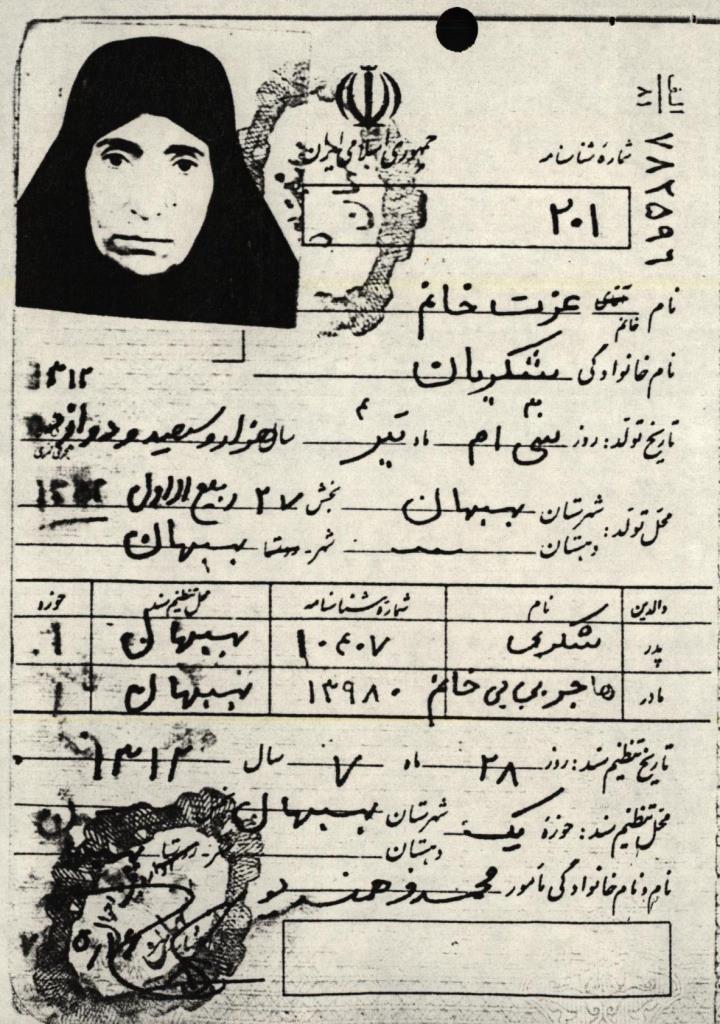 الف
۸۱
۷۸۲۵۹۶
جمهوری اسلامی ایران
شمارهٔ شناسنامه
۲۰۱
نام خانم عزت خانم
نام خانوادگی شکریان
۱۳۱۲
تاریخ تولد: روز سی ام ماه تیر سال هزار و سیصد و دوازده
محل تولد: شهرستان بهبهان بخش ۲۷ ربیع الاول ۱۳۵۲
دهستان شهر بهبهان
والدین نام شمارهٔ شناسنامه محل تنظیم سند حوزه
پدر شکری ۱۰۴۰۷ بهبهان ۱
مادر هاجر بی بی خانم ۱۳۹۸۰ بهبهان ۱
تاریخ تنظیم سند: روز ۲۸ ماه ۷ سال ۱۳۱۲
محل تنظیم سند: حوزهٔ یک شهرستان بهبهان
دهستان
نام و نام خانوادگی مأمور محمد